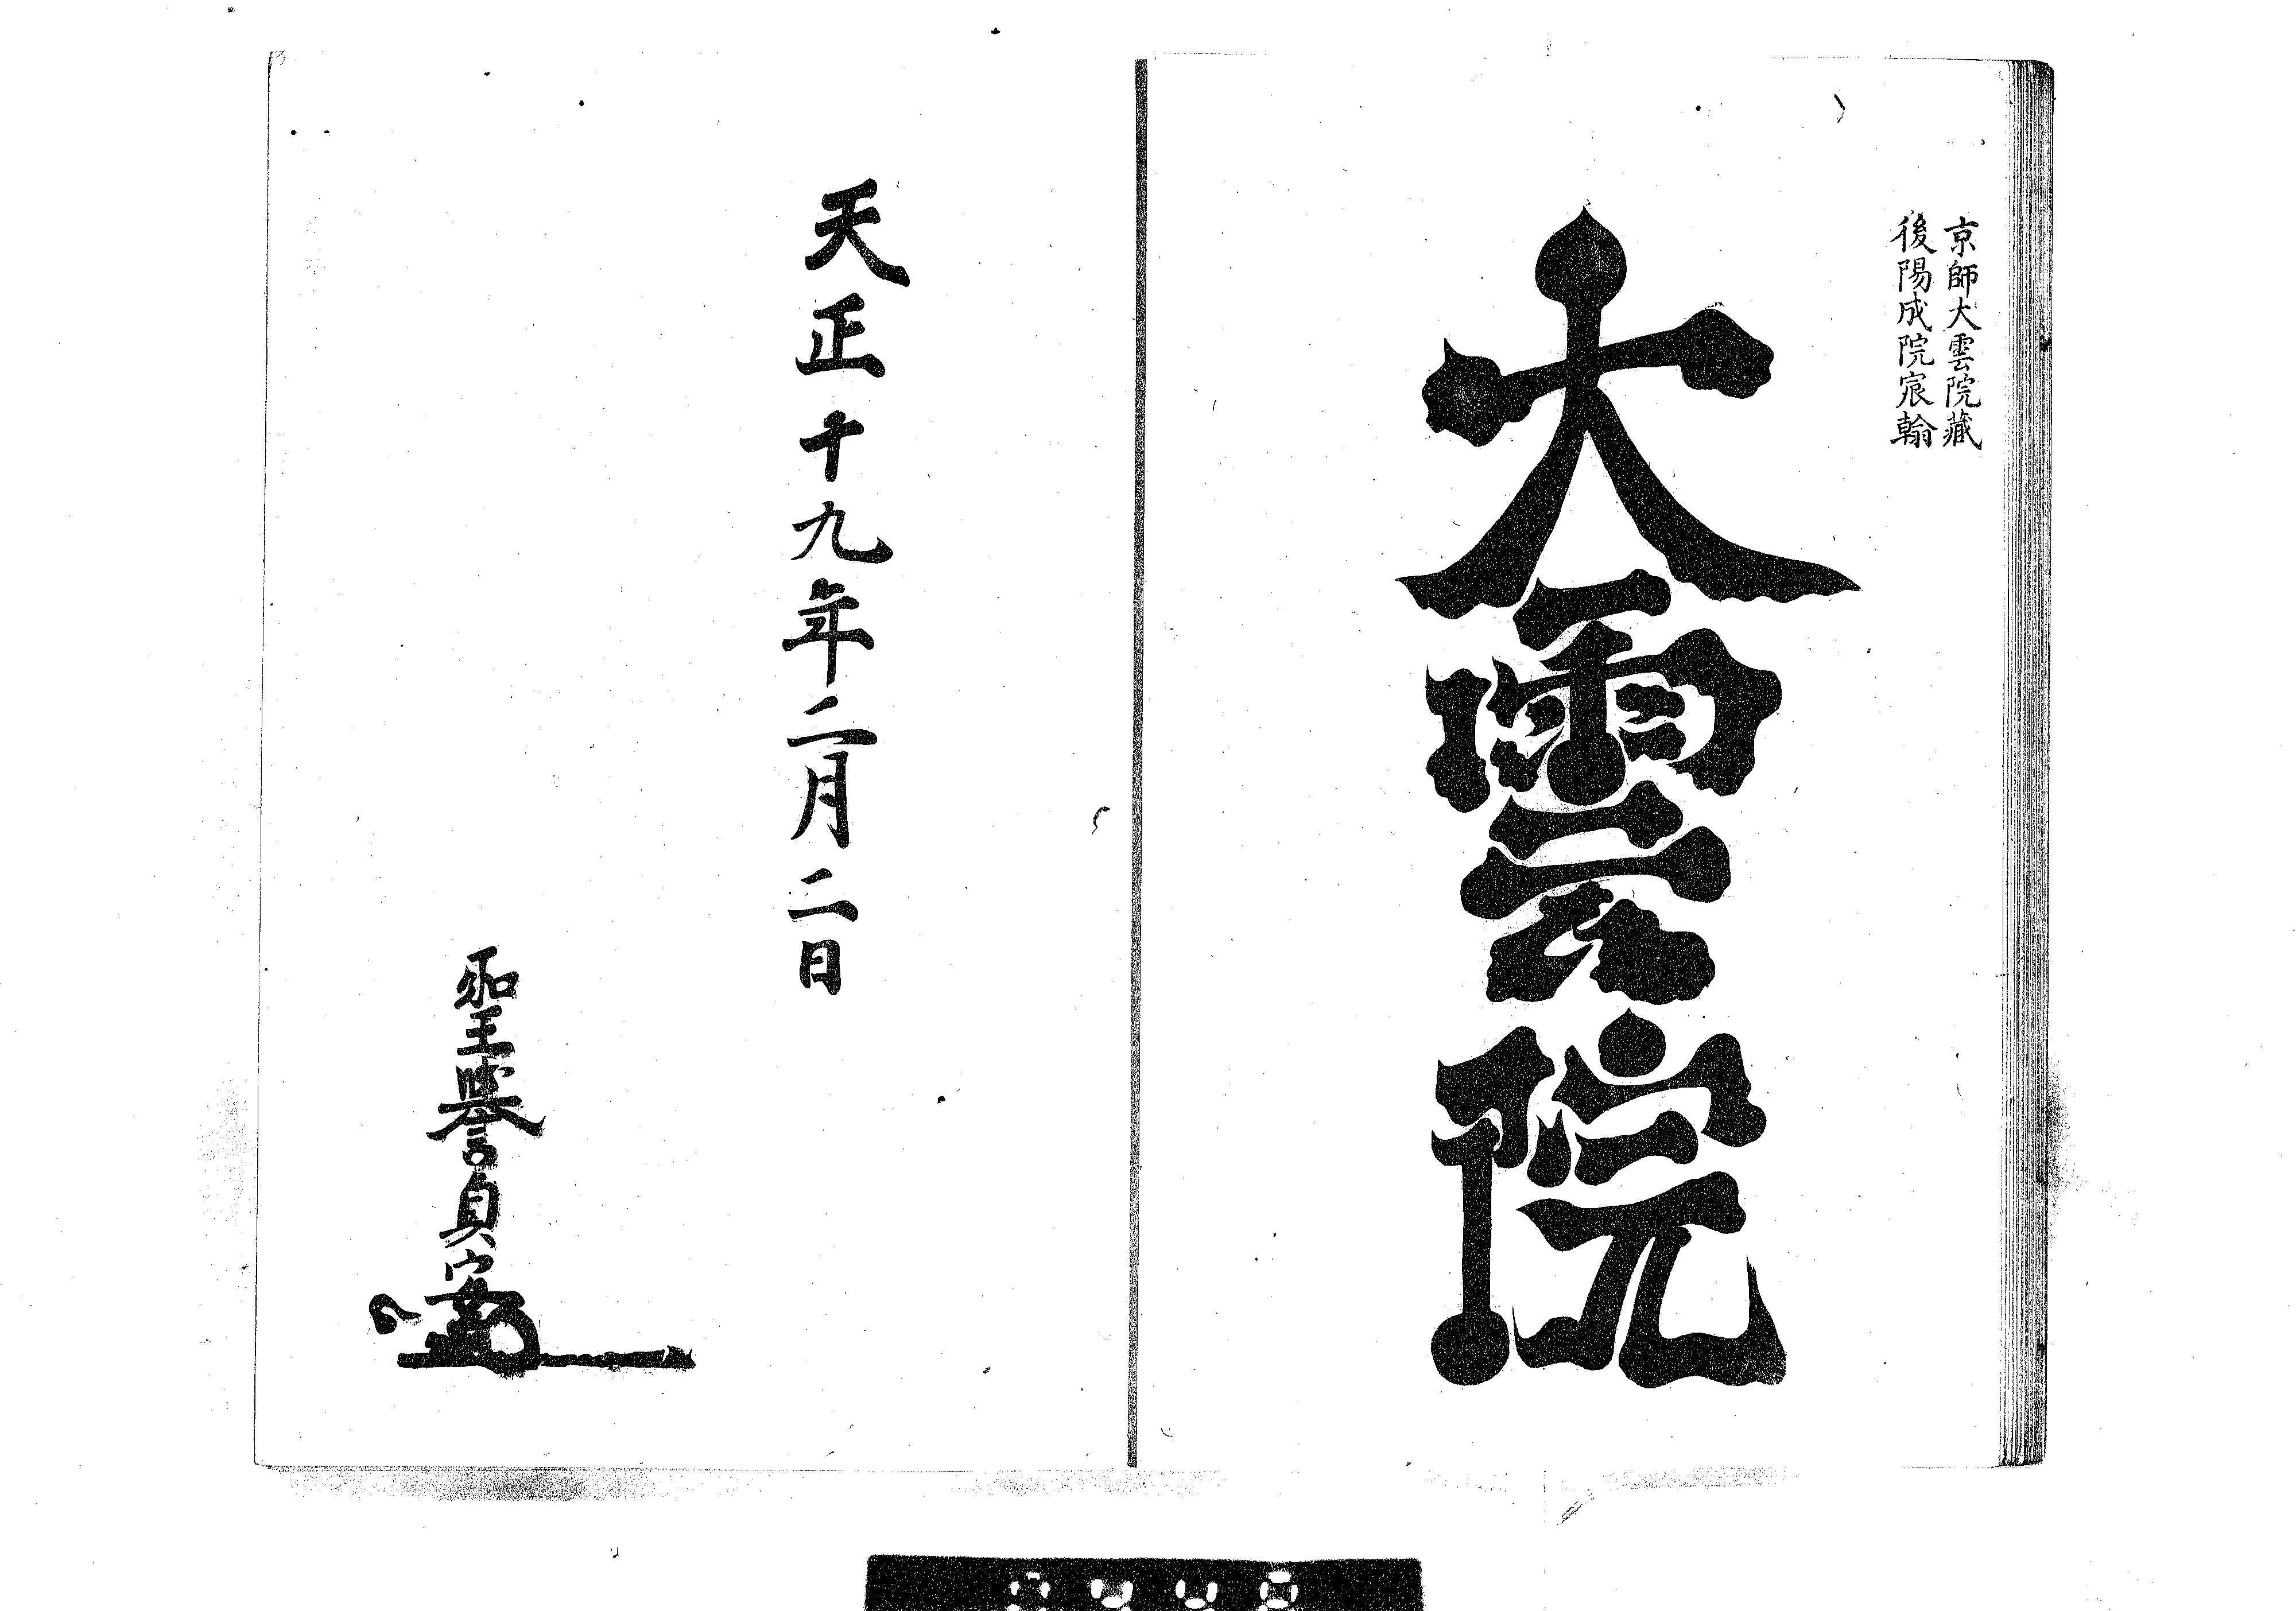 京師大雲院藏
後陽成院宸翰
大雲院
天正十九年二月二日
聖譽貞安